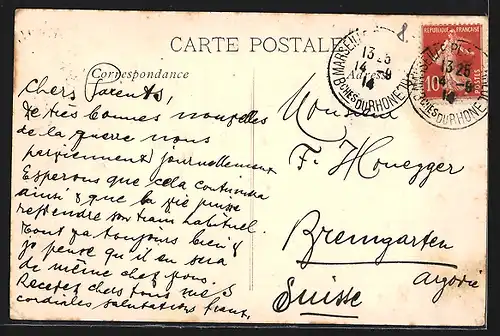 8
CARTE POSTALE
Correspondance
Adresse
RÉPUBLIQUE FRANÇAISE
10
POSTES
MARSEILLE
13 25
14 - 9
14
BCHES DU RHONE
MARSEILLE
13 25
14 - 9
14
BCHES DU RHONE
Chers Parents,
De très bonnes nouvelles
de la guerre nous
parviennent journellement
Espérons que cela continuera
ainsi & que la vie puisse
reprendre son train habituel.
Tout va toujours bien &
je pense qu'il en sera
de même chez vous.
Recevez chers tous mes
cordiales salutations
Monsieur
F. Honegger
Bremgarten
Argovie
Suisse